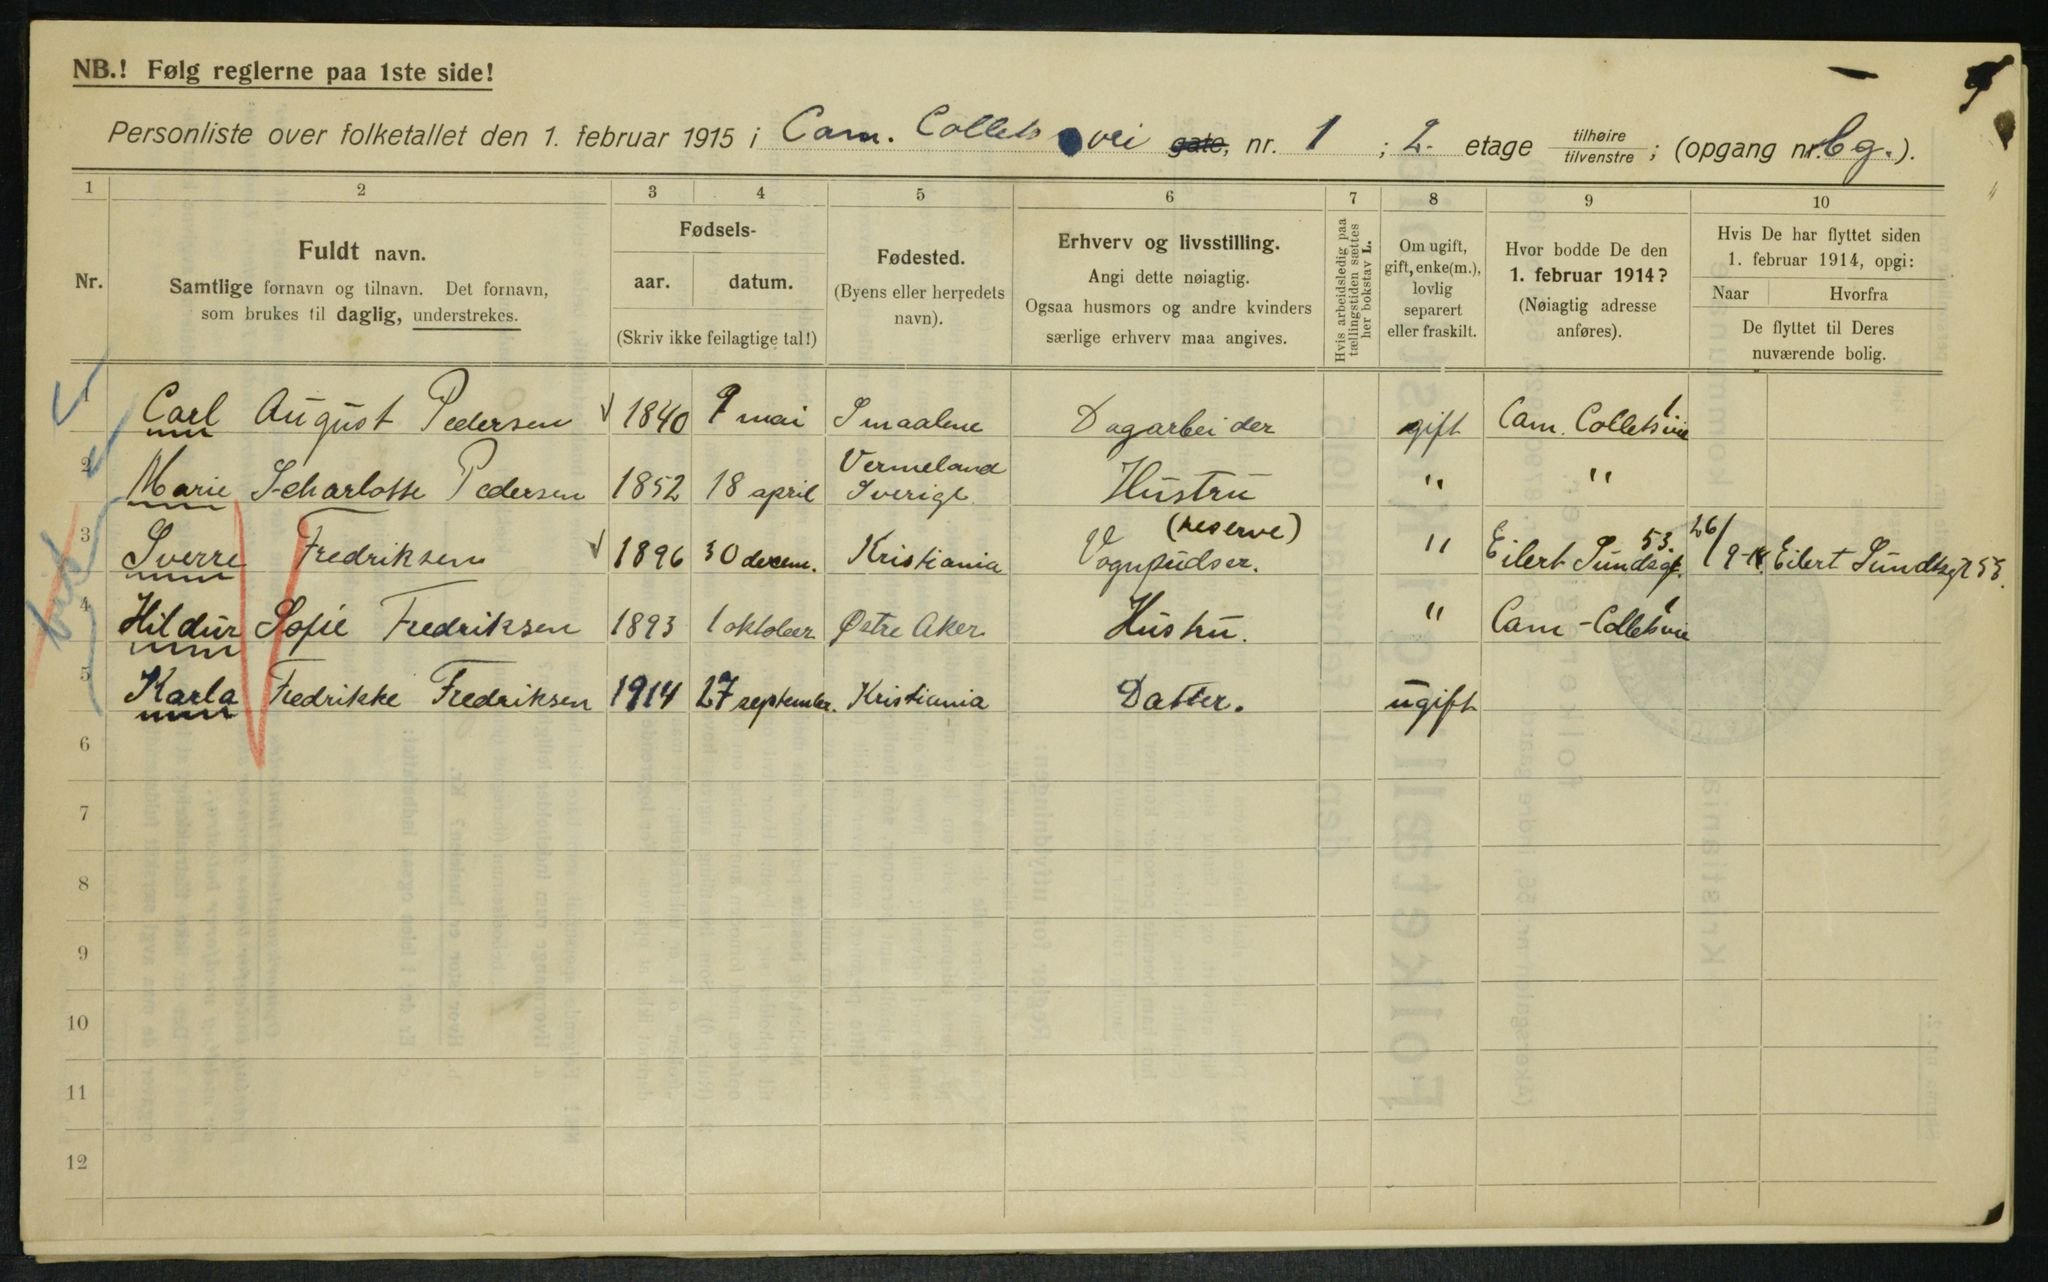 NB.! Følg reglerne paa 1ste side!
Personliste over folketallet den 1. februar 1915 i Cam. Collets vei gate, nr. 1 ; 2. etage tilhøire tilvenstre ; (opgang nr. Bg.).
1 2 3 4 5 6 7 8 9 10
Nr.
Fuldt navn.
Samtlige fornavn og tilnavn. Det fornavn,
som brukes til daglig, understrekes.
Fødsels-
aar. datum.
(Skriv ikke feilagtige tal!)
Fødested.
(Byens eller herredets
navn).
Erhverv og livsstilling.
Angi dette nøiagtig.
Ogsaa husmors og andre kvinders
særlige erhverv maa angives.
Hvis arbeidsledig paa
tællingstiden sættes
her bokstav L.
Om ugift,
gift, enke(m.),
lovlig
separert
eller fraskilt.
Hvor bodde De den
1. februar 1914?
(Nøiagtig adresse
anføres).
Hvis De har flyttet siden
1. februar 1914, opgi:
Naar Hvorfra
De flyttet til Deres
nuværende bolig.
1 Carl August Pedersen 1840 9 mai Smaalene Dagarbeider gift Cam. Colletsvie 1
2 Marie Scharlotte Pedersen 1852 18 april Vermeland Sverige Hustru " "
3 Sverre Fredriksen 1896 30 decem. Kristiania Vognpudser. (reserve) " Eilert Sundsgt. 53. 26/9-14 Eilert Sundtsgt 53.
4 Hildur Sofie Fredriksen 1893 1 oktober Østre Aker Hustru. " Cam-Colletsvie 1
5 Karla Fredrikke Fredriksen 1914 27 september. Kristiania Datter. ugift
6
7
8
9
10
11
12